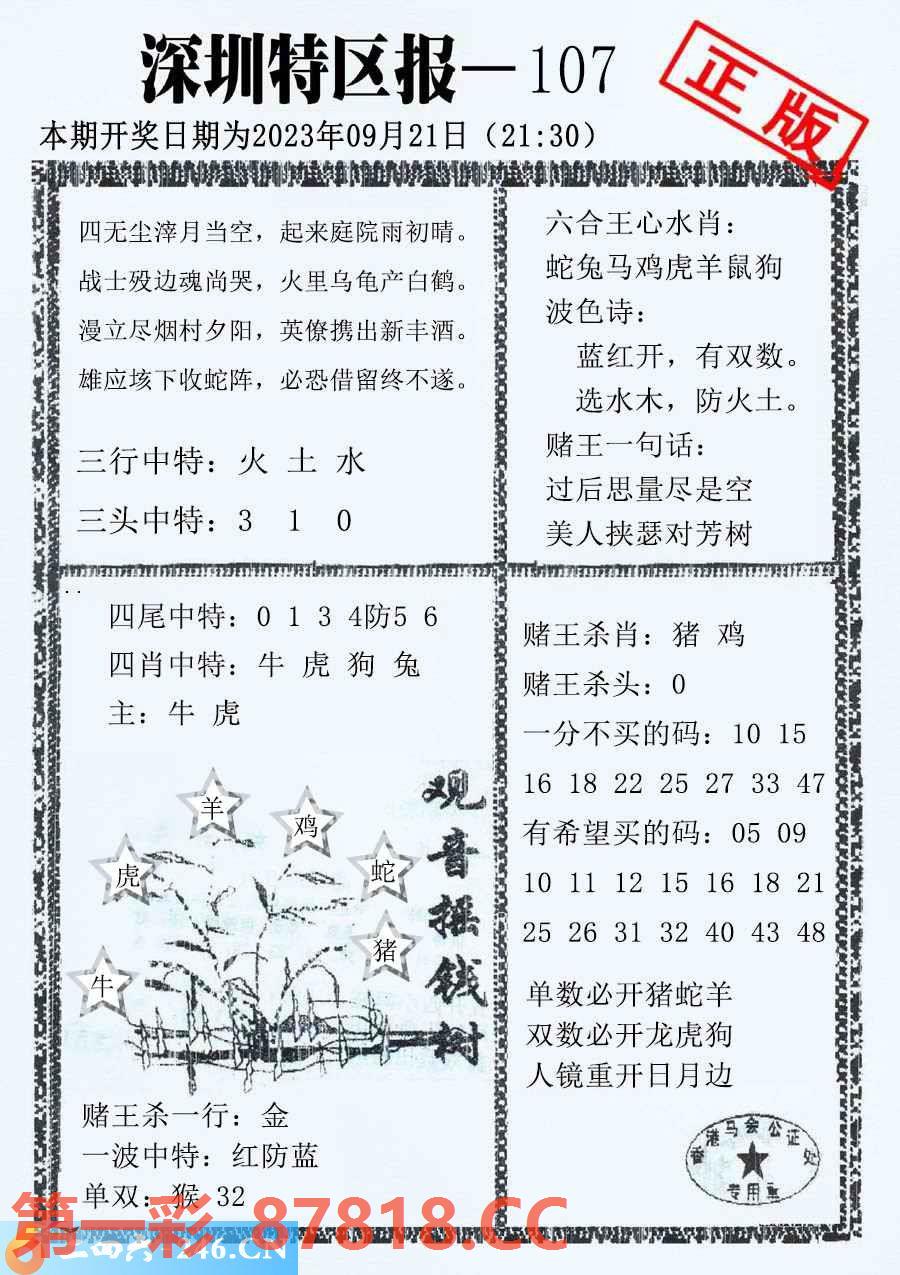 深圳特区报—107
正版
本期开奖日期为2023年09月21日（21:30）
四无尘滓月当空，起来庭院雨初晴。
战士殁边魂尚哭，火里乌龟产白鹤。
漫立尽烟村夕阳，英僚携出新丰酒。
雄应垓下收蛇阵，必恐借留终不遂。
三行中特：火 土 水
三头中特：3 1 0
六合王心水肖：
蛇兔马鸡虎羊鼠狗
波色诗：
蓝红开，有双数。
选水木，防火土。
赌王一句话：
过后思量尽是空
美人挟瑟对芳树
四尾中特：0 1 3 4防5 6
四肖中特：牛 虎 狗 兔
主：牛 虎
观音摇钱树
羊
鸡
虎
蛇
猪
牛
赌王杀一行：金
一波中特：红防蓝
单双：猴 32
赌王杀肖：猪 鸡
赌王杀头：0
一分不买的码：10 15
16 18 22 25 27 33 47
有希望买的码：05 09
10 11 12 15 16 18 21
25 26 31 32 40 43 48
单数必开猪蛇羊
双数必开龙虎狗
人镜重开日月边
香港马会公证处
专用章
第一彩 87818.CC
246.CN